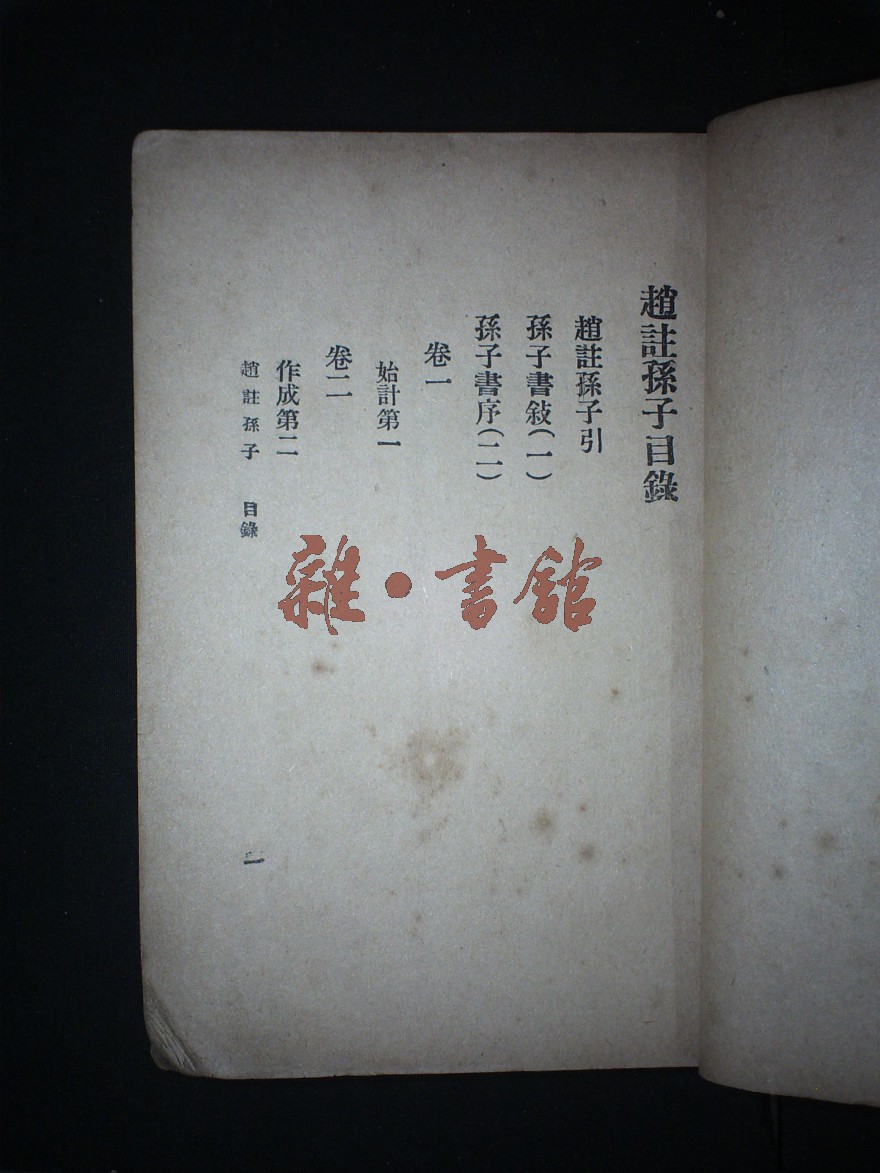 趙註孫子目錄
趙註孫子引
孫子書敍(一)
孫子書序(二)
卷一
始計第一
卷二
作成第二
趙註孫子 目錄
一
雜·書館